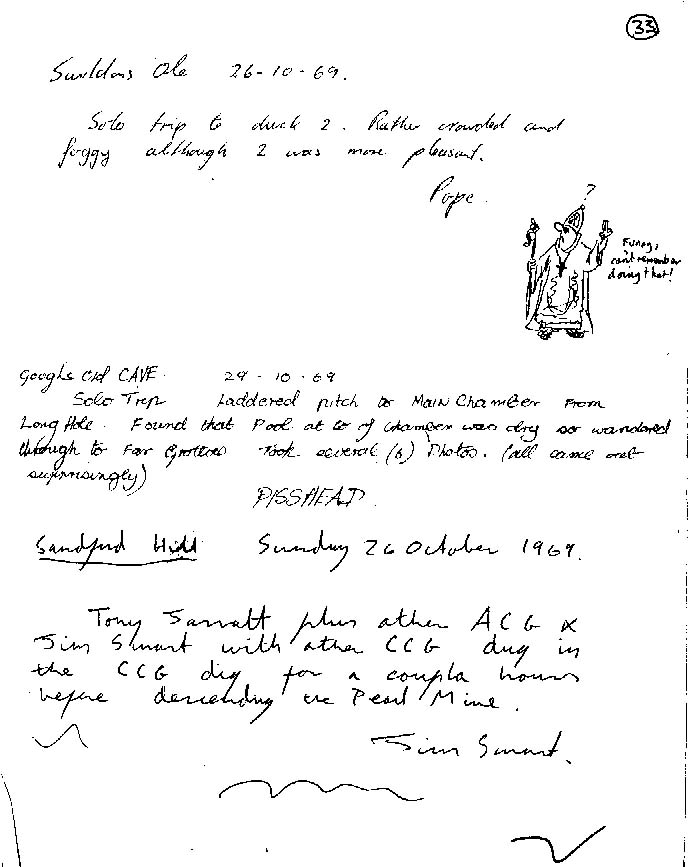 33
Swildons Ole 26-10-69.
Solo trip to duck 2. Rather crowded and
foggy although 2 was more pleasant.
Pope.
?
Funny,
can't remember
doing that!
Goughs Old CAVE. 29-10-69
Solo Trip Laddered pitch to Main Chamber From
Long Hole. Found that Pool at of chamber was dry so wandered
through to Far Grottoes Took several (6) Photos. (all came out
surprisingly)
PISSHEAD.
Sandford Hill Sunday 26 October 1969.
Tony Jarratt plus other ACG &
Jim Smart with other CCG dug in
the CCG dig for a coupla hours
before descending the Pearl Mine.
Jim Smart.